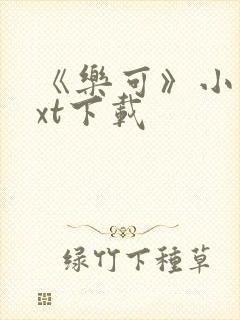 《樂可》小
xt下載
绿竹下種草